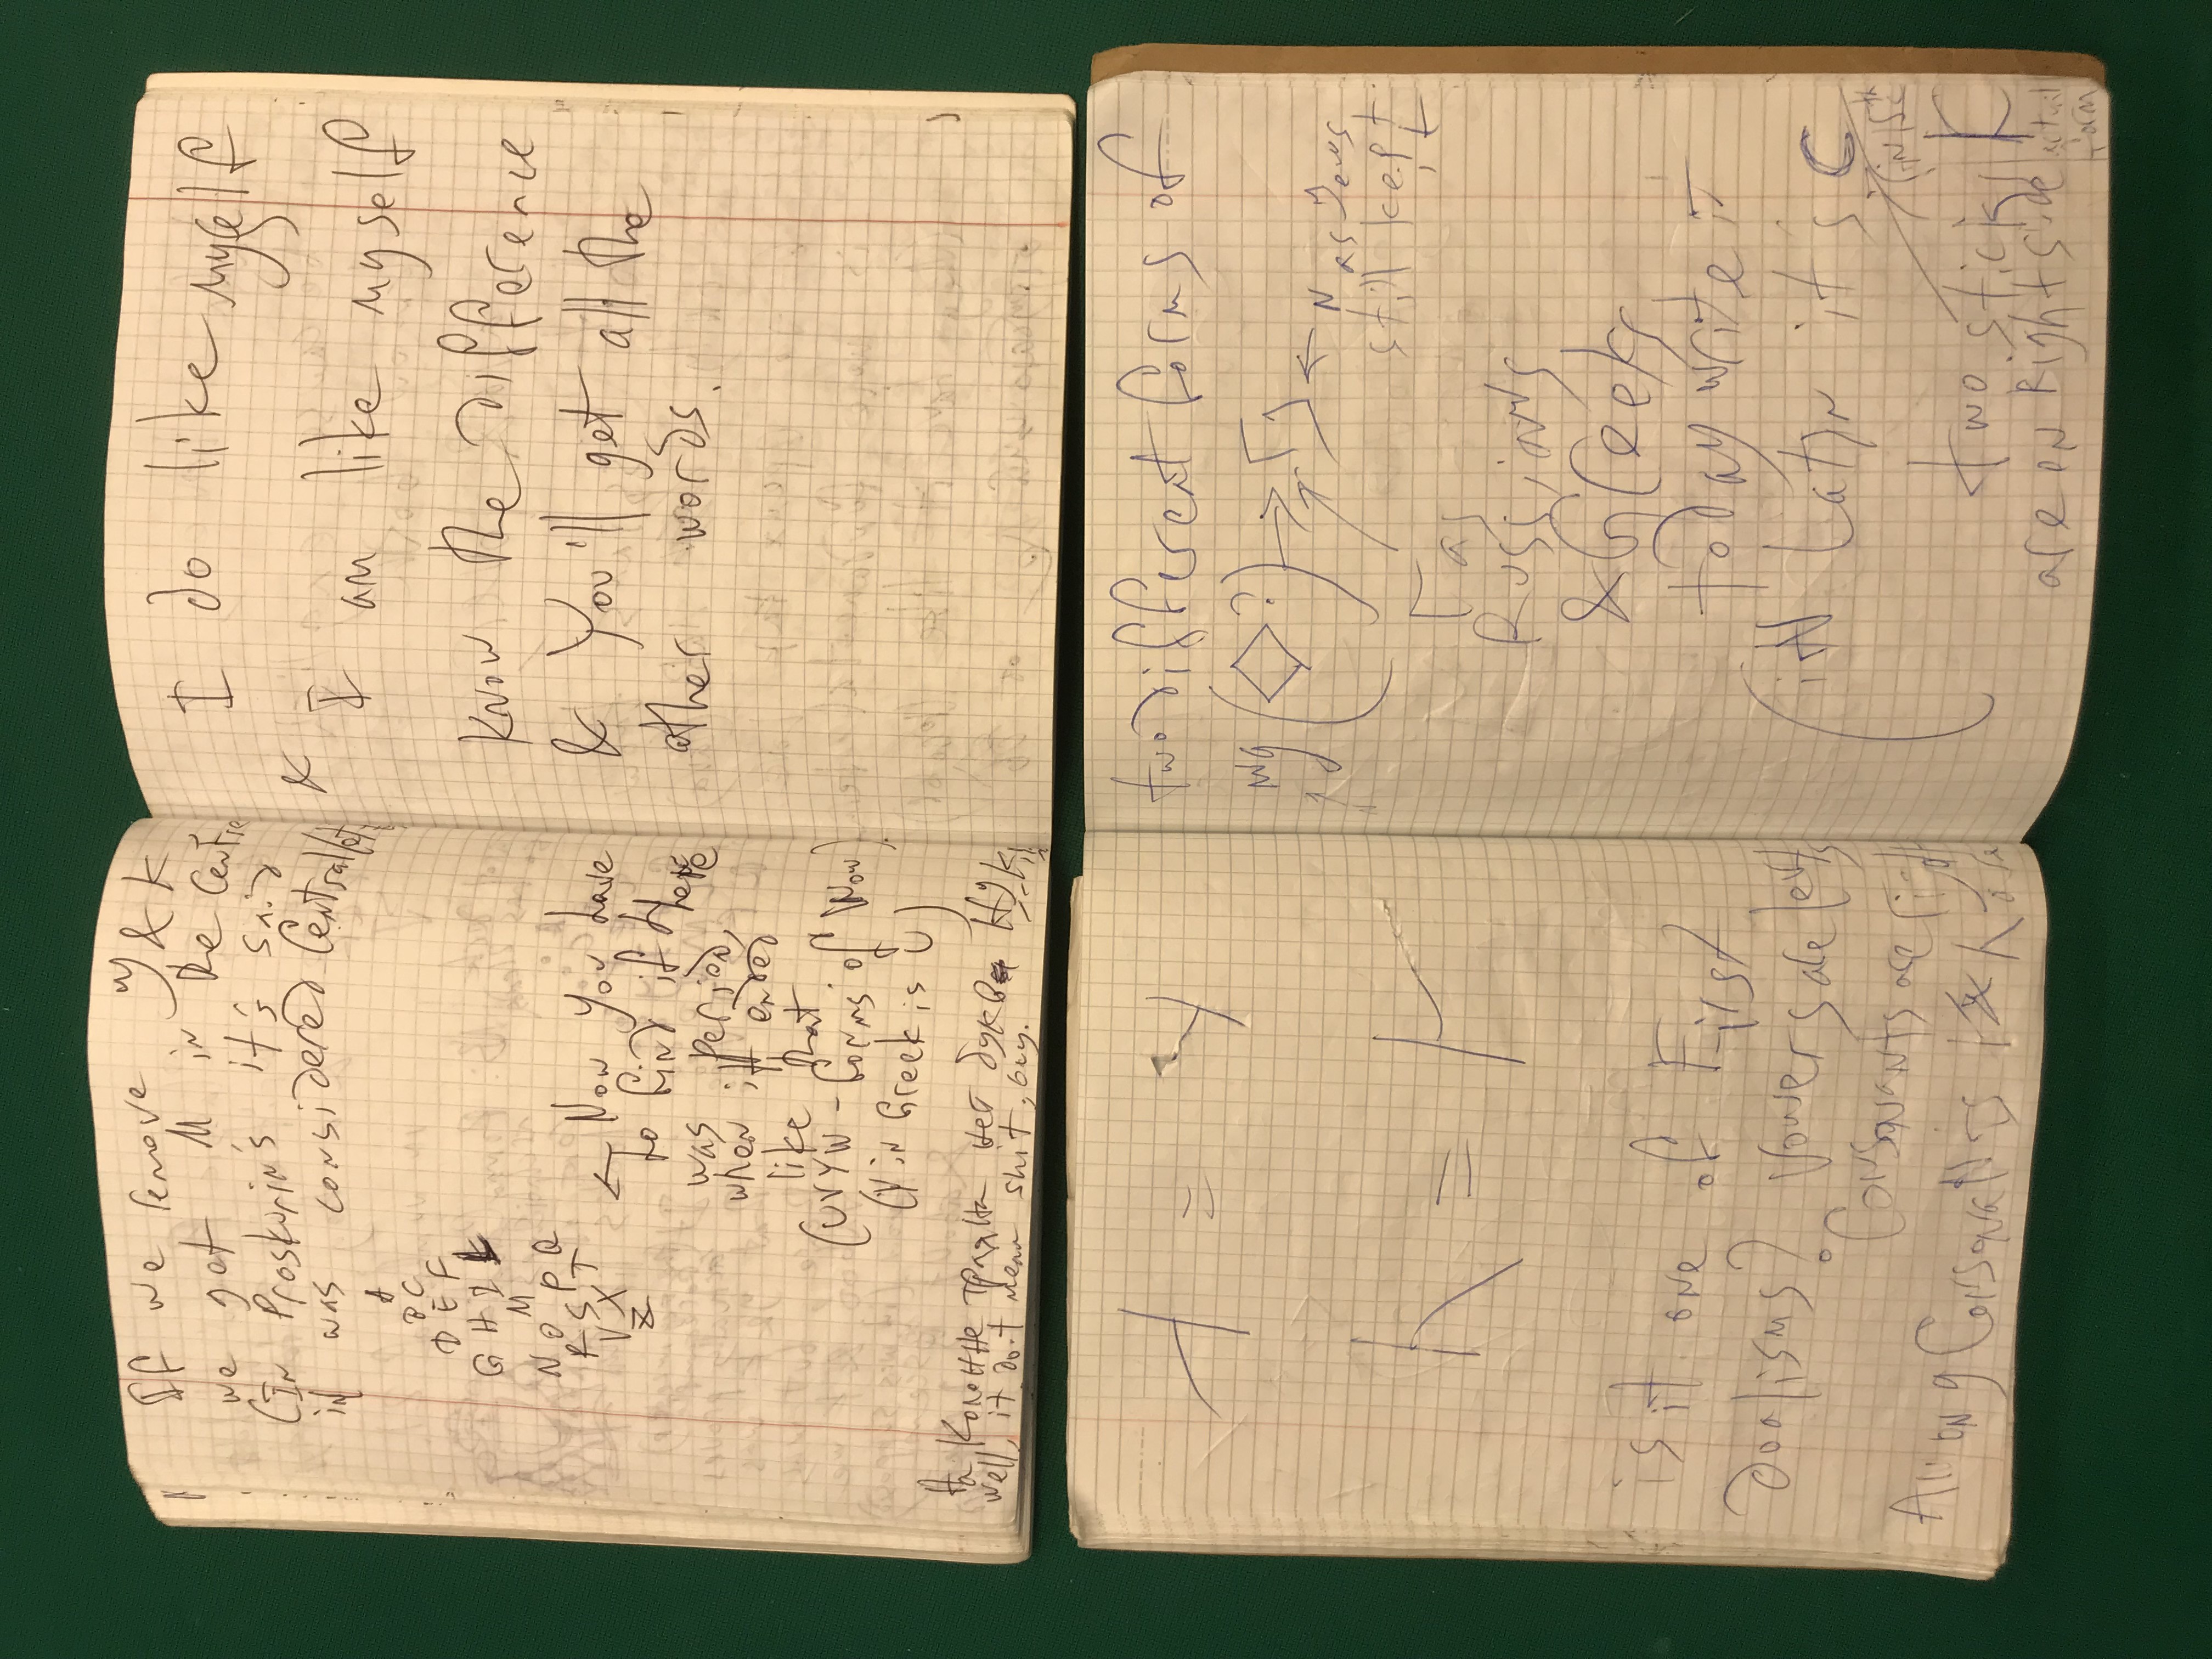 If we remove У & K
we get M in the Centre
(In Proskurin's it's said
it was considered Central
A
B C
D E F
G H I L
M
N O P Q
R S T
V X
Z
← Now you have
to find if there
was period,
when it ended
like that
(UVYW – forms of Wow)
(Y in Greek is U)
На Колонне Траяна нет букв НУК,
well, it don't mean shit, guy.
I do like myself
&
I am like myself
Know the difference
& You'll get all the
other words.
=
=
is it one of First
doalisms? Vowers are left
Consonants are right
Among Consonants
two different forms of
ng (◇?) → Г
← N as Jews
still kept
it
Г as
Russians
& Greeks
today write it
(in Latin it's C
two sticks K
are on Right side
actual
form